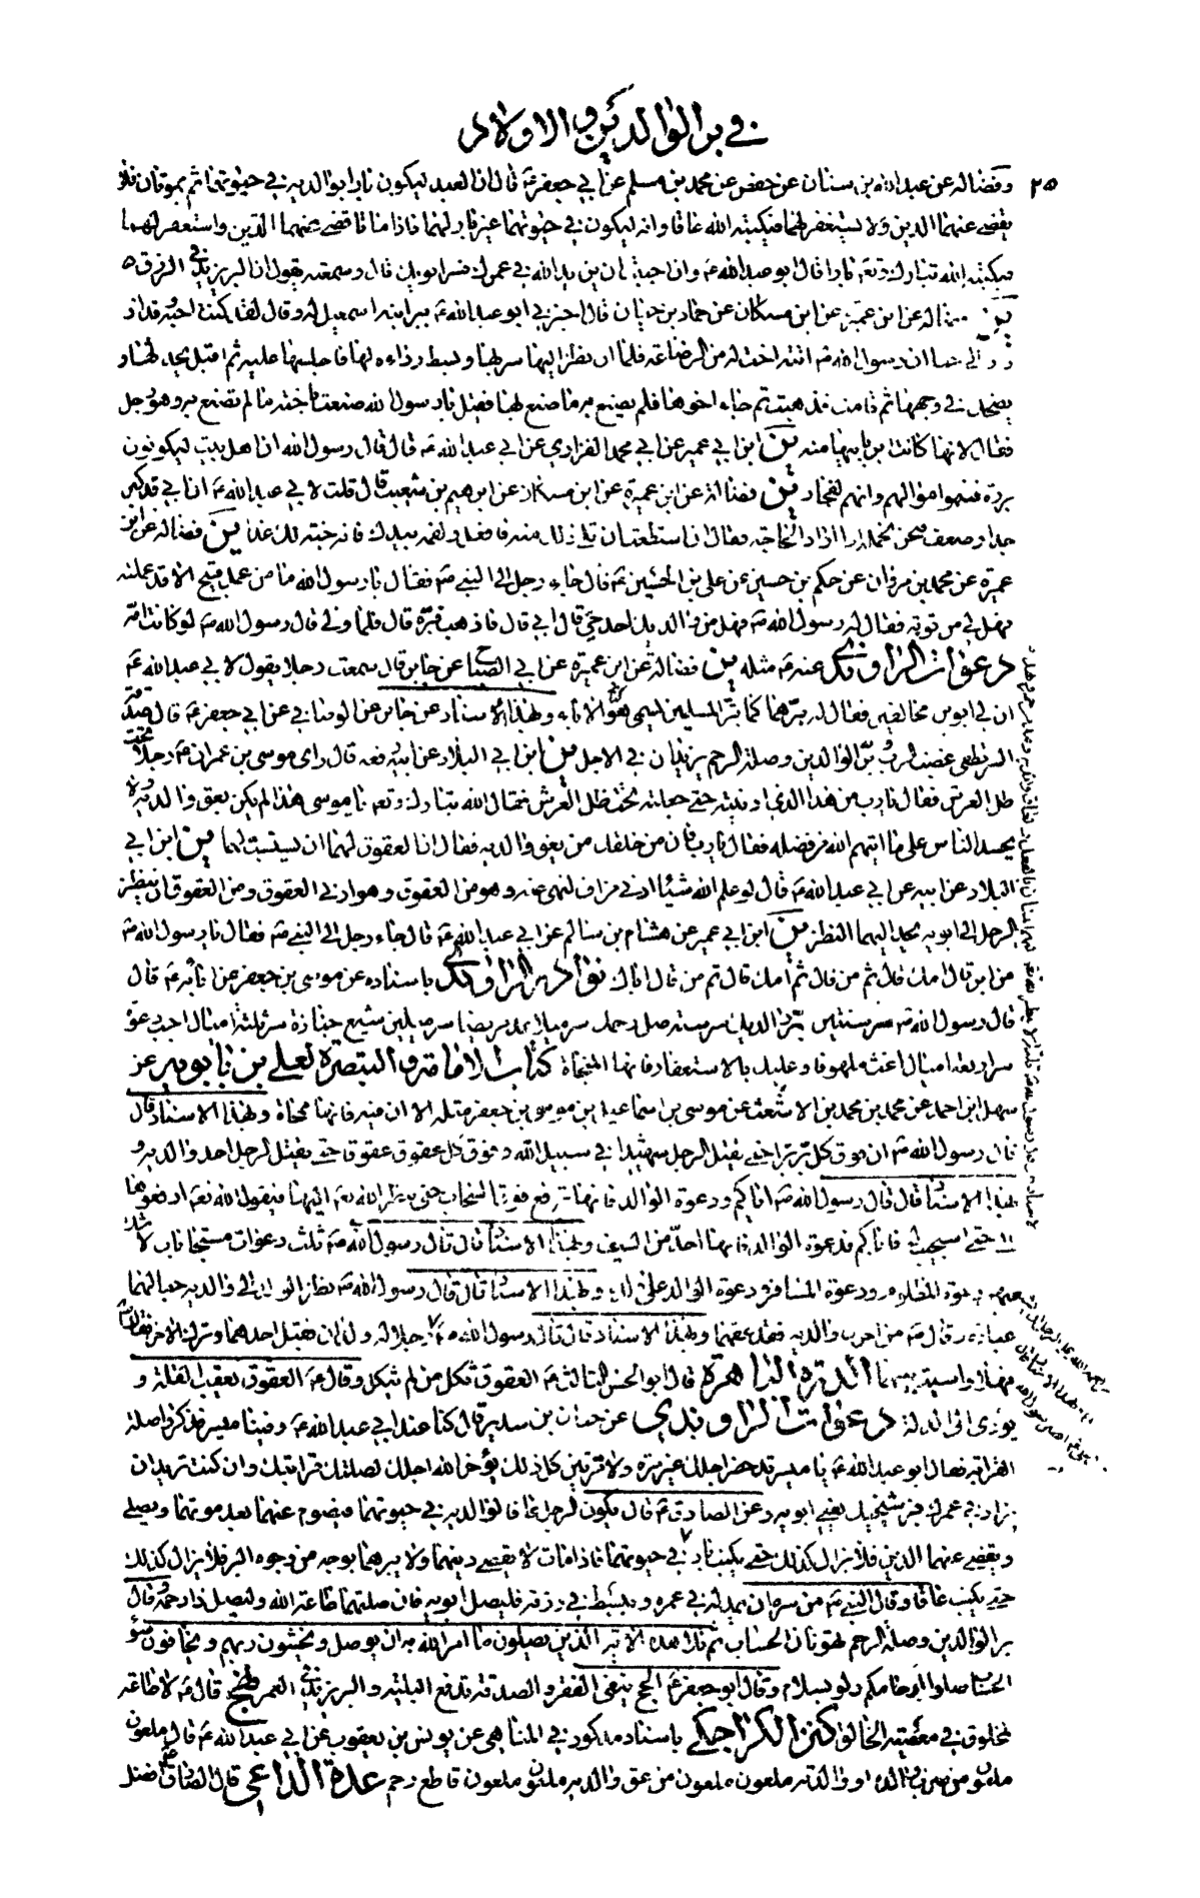 في بر الوالدين والاولاد
٢٥
وفضاله عن عبد الله بن سنان عن حفص عن محمد بن مسلم عن ابي جعفر ع قال ان العبد ليكون بارا بوالديه في حيوتهما ثم يموتان فلا
يقضي عنهما الدين ولا يستغفر لهما فيكتبه الله عاقا وانه ليكون في حيوتهما غير بار لهما فاذا ماتا قضى عنهما الدين واستغفر لهما
فيكتبه الله تبارك وتع بارا قال ابو عبد الله ع وان احببت ان يزيد الله في عمرك فسر ابويك قال وسمعته يقول ان البر يزيد في الرزق
ين فضاله عن ابن عميرة عن ابن مسكان عن عمار بن حيان قال اخبرني ابو عبد الله ع ببر ابنه اسمعيل له وقال لقد كنت احبه وقد ازداد
الي حبا ان رسول الله ص اتته اخت له من الرضاعة فلما ان نظر اليها سر بها وبسط رداءه لها فاجلسها عليه ثم اقبل يحدثها و
يضحك في وجهها ثم قامت فذهبت ثم جاء اخوها فلم يصنع به ما صنع بها فقيل يا رسول الله صنعت باخته ما لم تصنع به وهو رجل
فقال لانها كانت ابر بابيها منه ين ابن ابي عمير عن ابي محمد الفزاري عن ابي عبد الله ع قال قال رسول الله ان اهل بيت ليكونون
بررة فتنموا اموالهم وانهم لفجار ين فضالة عن ابن عميرة عن ابن مسكان عن ابرهيم بن شعيب قال قلت لابي عبد الله ع ان ابي قد كبر
جدا وضعف فنحن نحمله اذا اراد الحاجة فقال ان استطعت ان تلي ذلك منه فافعل ولقمه بيدك فانه جنة لك غدا ين فضاله عن ابن
عميرة عن محمد بن مروان عن حكم بن حسين عن علي بن الحسين ع قال جاء رجل الى النبي ص فقال يا رسول الله ما من عمل قبيح الا قد عملته
فهل لي من توبة فقال له رسول الله ص فهل من والديك احد حي قال ابي قال فاذهب فبره قال فلما ولى قال رسول الله ص لو كانت امه
دعوات الراوندي عنه ع مثله ين فضالة عن ابن عميرة عن ابي الصباح عن جابر قال سمعت رجلا يقول لابي عبد الله ع
ان لي ابوين مخالفين فقال له برهما كما تبر المسلمين وبهذا الاسناد عن جابر عن الوصافي عن ابي جعفر ع قال صدقة
السر تطفي غضب الرب وبر الوالدين وصلة الرحم يزيدان في الاجل ين ابن ابي البلاد عن ابيه رفعه قال راى موسى بن عمران ع رجلا تحت
ظل العرش فقال يا رب من هذا الذي ادنيته حتى جعلته تحت ظل العرش فقال الله تبارك وتع يا موسى هذا لم يكن يعق والديه ولا
يحسد الناس على ما اتيهم الله من فضله فقال يا رب فان من خلقك من يعق والديه فقال ان العقوق لهما ان يستسب لهما ين ابن ابي
البلاد عن ابيه عن ابي عبد الله ع قال لو علم الله شيئا ادنى من اف لنهى عنه وهو من العقوق وهو ادنى العقوق ومن العقوق ان ينظر
الرجل الى ابويه يحد اليهما النظر ين ابن ابي عمير عن هشام بن سالم عن ابي عبد الله ع قال جاء رجل الى النبي ص فقال يا رسول الله ص
من ابر قال امك قال ثم من قال ثم امك قال ثم من قال اباك نوادر الراوندي باسناده عن موسى بن جعفر عن ابائه ع قال
قال رسول الله ص سر سنتين بر والديك سر سنة صل رحمك سر ميلا عد مريضا سر ميلين شيع جنازة سر ثلثة اميال اجب دعوة
سر اربعة اميال اغث ملهوفا وعليك بالاستغفار فانها المنجاة كتاب الامامة والتبصرة لعلي بن بابويه عن
سهل ابن احمد عن محمد بن محمد بن الاشعث عن موسى بن اسماعيل بن موسى بن جعفر مثله الا ان فيه فانها ممحاة وبهذا الاسناد قال
قال رسول الله ص ان فوق كل بر برا حتى يقتل الرجل شهيدا في سبيل الله وفوق كل عقوق عقوقا حتى يقتل الرجل احد والديه و
بهذا الاسناد قال قال رسول الله ص اياكم ودعوة الوالد فانها ترفع فوق السحاب حتى ينظر الله تع اليها فيقول الله تع ارفعوها
الي حتى استجيب له فاياكم ودعوة الوالد فانها احد من السيف وبهذا الاسناد قال قال رسول الله ص ثلث دعوات مستجابات لا شك
فيهن دعوة المظلوم ودعوة المسافر ودعوة الوالد على ولده وبهذا الاسناد قال قال رسول الله ص نظر الولد الى والديه حبا لهما
عبادة وقال ص من احزن والديه فقد عقهما وبهذا الاسناد قال قال رسول الله ص رجلا له ولدان فقبل احدهما وترك الاخر فقال ص
فهلا واسيت بينهما الدرة الباهرة قال ابو الحسن الثالث ع العقوق ثكل من لم يثكل وقال ع العقوق يعقب القلة و
يؤدي الى الذلة دعوات الراوندي عن حنان بن سدير قال كنا عند ابي عبد الله ع وفينا ميسر فذكروا صلة
القرابة فقال ابو عبد الله ع يا ميسر قد حضر اجلك غير مرة ولا مرتين كل ذلك يؤخر الله اجلك لصلتك قرابتك وان كنت تريد ان
يزاد في عمرك فبر شيخيك يعني ابويه وعن الصادق ع قال يكون الرجل عاقا لوالديه في حيوتهما فيصوم عنهما بعد موتهما ويصلي
ويقضي عنهما الدين فلا يزال كذلك حتى يكتب بارا في حيوتهما فاذا مات لا يقضي دينهما ولا يبرهما بوجه من وجوه البر فلا يزال كذلك
حتى يكتب عاقا وقال النبي ص من سره ان يمد له في عمره ويبسط في رزقه فليصل ابويه فان صلتهما طاعة الله وليصل ذا رحمه وقال
بر الوالدين وصلة الرحم يهونان الحساب ثم تلا هذه الاية الذين يصلون ما امر الله به ان يوصل ويخشون ربهم ويخافون سوء
الحساب صلوا ارحامكم ولو بسلام وقال ابو جعفر ع الحج ينفي الفقر والصدقة تدفع البلية والبر يزيد في العمر نهج قال ع لا طاعة
لمخلوق في معصية الخالق كنز الكراجكي باسناد مذكور في المناهي عن يونس بن يعقوب عن ابي عبد الله ع قال ملعون
ملعون من ضرب والده او والدته ملعون ملعون من عق والديه ملعون ملعون قاطع رحم عدة الداعي قال الصادق ع افضل